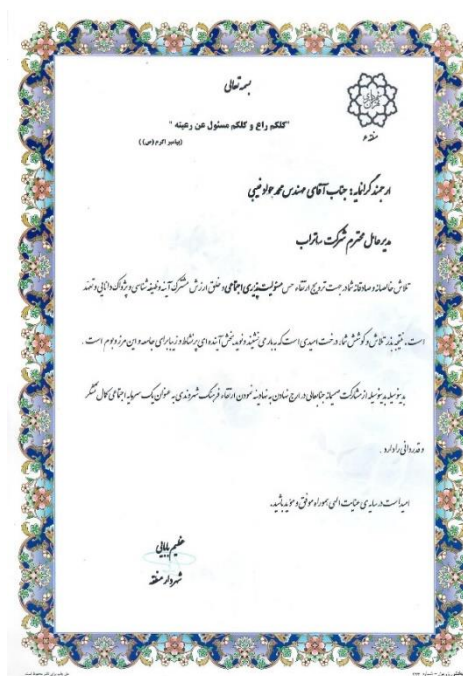 بسمه تعالی
"کلکم راع و کلکم مسئول عن رعیته"
(پیامبر اکرم (ص))
منطقه ۶
ارجمند گرانمایه: جناب آقای مهندس محمد جواد غیبی
مدیرعامل محترم شرکت ساتراب
تلاش خالصانه و صادقانه شما در جهت ترویج ارتقاء حس مسئولیت پذیری اجتماعی و خلق ارزش مشترک آینه وظیفه شناسی و پژواک دانایی و تعهد
است، نتیجه بذر تلاش و کوشش شما، درخت امیدی است که به باری نشیند و نویدبخش آینده ای پرنشاط و زیبا برای جامعه و این مرز و بوم است.
بدینوسیله بدینوسیله از مشارکت صمیمانه جنابعالی در ارج نهادن به نهادینه نمودن ارتقاء فرهنگ شهروندی به عنوان یک سرمایه اجتماعی کمال تشکر
و قدردانی را دارد.
امید است در سایه ی عنایت الهی همواره موفق و موید باشید.
عظیم بابایی
شهردار منطقه